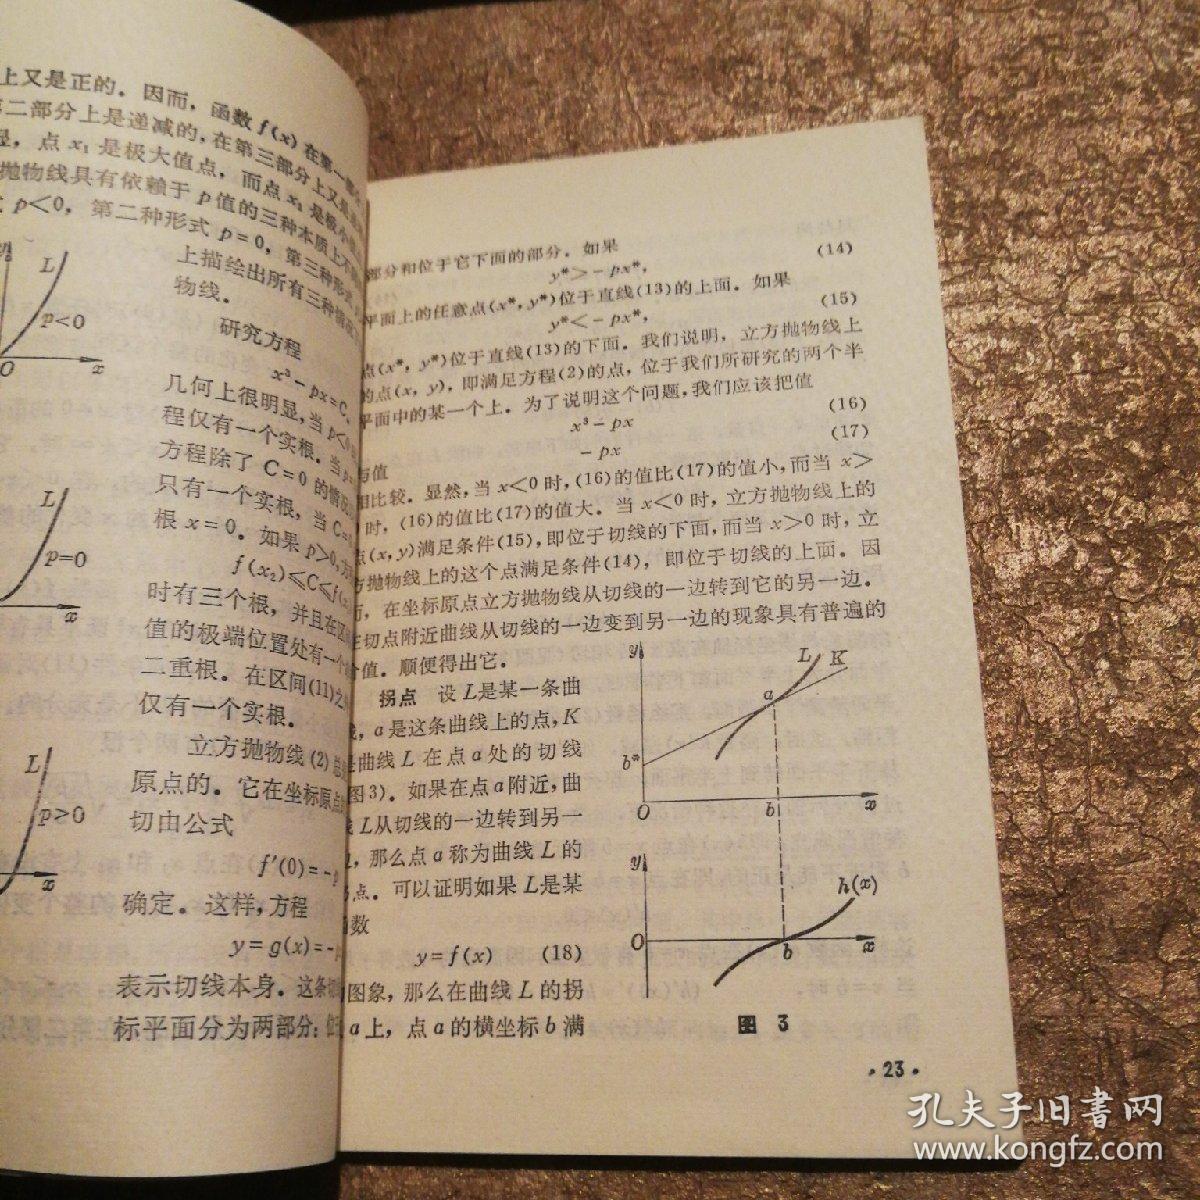 上又是正的．因而，函数 f(x) 在第一部
二部分上是递减的，在第三部分上又是
点 x₁ 是极大值点，而点 x₂ 是极小
抛物线具有依赖于 p 值的三种本质上不
p<0，第二种形式 p=0，第三种形式
上描绘出所有三种情况
物线．
研究方程
x³－px=C．
几何上很明显，当 p<0
程仅有一个实根．当
方程除了 C=0 的情况
只有一个实根，当 C=0
根 x=0．如果 p>0，
f(x₂)≤C≤f(x
时有三个根，并且在区间
值的极端位置处有一个
二重根．在区间(11)之
仅有一个实根．
立方抛物线 (2) 总
原点的．它在坐标原点
切由公式
f′(0)=－p
确定．这样，方程
y=g(x)=－p
表示切线本身．这条
标平面分为两部分：位
L
p<0
O
x
L
p=0
x
L
p>0
x
部分和位于它下面的部分．如果
y*>－px*， (14)
平面上的任意点(x*, y*)位于直线(13)的上面．如果
y*<－px*， (15)
点(x*, y*)位于直线(13)的下面．我们说明，立方抛物线上
的点(x, y)，即满足方程(2)的点，位于我们所研究的两个半
平面中的某一个上．为了说明这个问题，我们应该把值
x³－px (16)
与值
－px (17)
相比较．显然，当 x<0 时，(16)的值比(17)的值小，而当 x>
时，(16)的值比(17)的值大．当 x<0 时，立方抛物线上的
点(x, y)满足条件(15)，即位于切线的下面，而当 x>0 时，立
方抛物线上的这个点满足条件(14)，即位于切线的上面．因
，在坐标原点立方抛物线从切线的一边转到它的另一边．
在切点附近曲线从切线的一边变到另一边的现象具有普遍的
价值．顺便得出它．
拐点 设 L 是某一条曲
，a 是这条曲线上的点，K
是曲线 L 在点 a 处的切线
图3)．如果在点 a 附近，曲
线 L 从切线的一边转到另一
，那么点 a 称为曲线 L 的
点．可以证明如果 L 是某
函数
y=f(x) (18)
图象，那么在曲线 L 的拐
a 上，点 a 的横坐标 b 满
y
L
K
a
b*
O
b
x
y
h(x)
O
b
x
图 3
·23·
孔夫子旧书网
www.kongfz.com